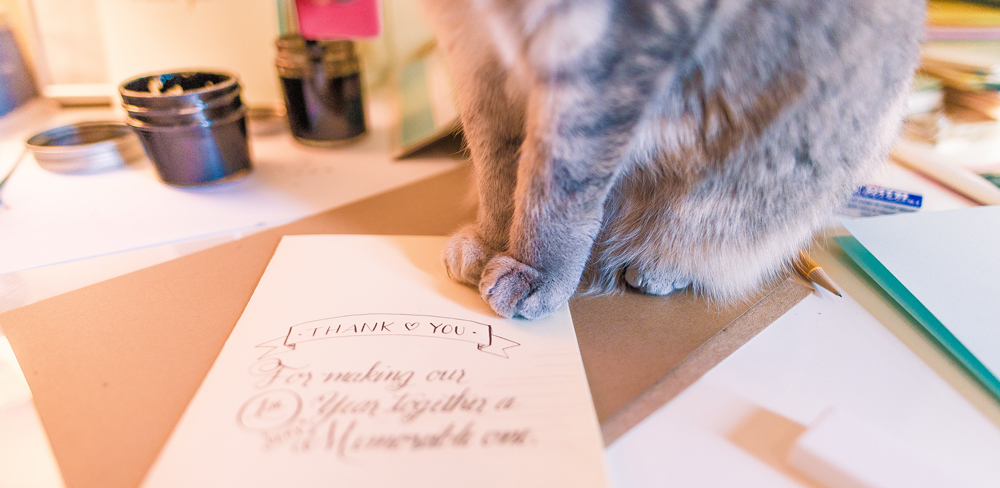 THANK ♡ YOU
For making our
1st Year together a
a Memorable one.